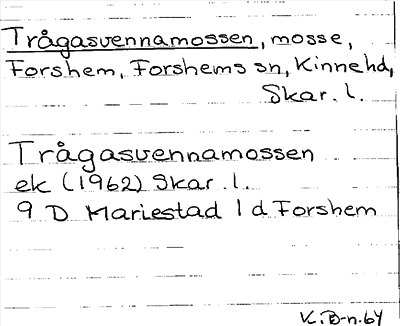 Trågasvennamossen, mosse,
Forshem, Forshems sn, Kinnehd,
Skar. l.
Trågasvennamossen
ek (1962) Skar. l.
9 D Mariestad 1 d Forshem
K. B-n. 64